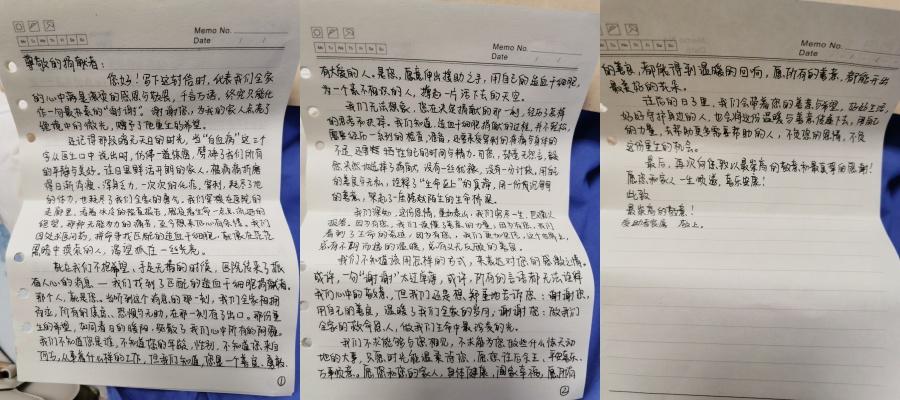 Memo No.
Date / /
Mo Tu We Th Fr Sa Su
尊敬的捐献者：
您好！写下这封信时，代表我们全家
的心中满是滚烫的感恩与敬畏，千言万语，终究只能化
作一句最朴素的“谢谢”。谢谢您，为我的家人点亮了
绝境中的微光，赠予了他重生的希望。
还记得那段暗无天日的时光，当“白血病”这三个
字从医生口中说出时，仿佛一道惊雷，劈碎了我们所有
的平静与美好。往日里鲜活开朗的家人，被病痛折磨
得日渐消瘦、浑身乏力，一次次的化疗、穿刺，耗尽了他
的体力，也耗尽了我们全家的勇气。我们穿梭在医院的
走廊里，看着冰冷的检查报告，眼睁睁看着生命一点点流逝的
绝望，那种无能为力的痛苦，至今想来仍心有余悸。我们
四处求医问药，拼命寻找匹配的造血干细胞，就像在茫茫
黑暗中摸索的人，渴望抓住一丝光亮。
就在我们不抱希望，手足无措的时候，医院传来了振
奋人心的消息——我们找到了匹配的造血干细胞捐献者。
那个人，就是您。当听到这个消息的那一刻，我们全家相拥
而泣，所有的焦虑、恐惧与无助，在那一刻有了出口。那份重
生的希望，如同春日的暖阳，驱散了我们心中所有的阴霾。
我们不知道您是谁，不知道您的年龄、性别，不知道您来自
何方，从事着什么样的工作，但我们知道，您是一个善良、勇敢、
①
Memo No.
Date / /
Mo Tu We Th Fr Sa Su
有大爱的人。是您，愿意伸出援助之手，用自己的造血干细胞，
为一个素不相识的人，撑起一片活下去的天空。
我们无法想象，您在决定捐献的那一刻，经历了怎样
的思考和抉择。我们知道，造血干细胞捐献的过程，并不轻松，
需要经历一系列的检查、准备，还要承受穿刺的疼痛与身体的
不适，还要牺牲自己的时间与精力。可您，却毫无怨言，毅
然决然地选择了捐献，没有一丝犹豫，没有一分计较，用您
的善良与无私，诠释了“生命至上”的真谛，用一份真诚
的善意，架起了一座跨越陌生的生命桥梁。
我们深知，这份恩情，重如泰山，我们穷其一生，也难以
报答。因为有您，我们读懂了善意的力量，因为有您，我们
看到了生命的奇迹，因为有您，我们更加坚信，这个世界上，
总有不期而遇的温暖，总有义无反顾的善良。
我们不知道该用怎样的方式，来表达对您的感激之情。
或许，一句“谢谢”太过单薄，或许，所有的言语都无法诠释
我们心中的敬意，但我们还是想郑重地告诉您：谢谢您，
用自己的善良，温暖了我们全家的岁月，谢谢您：做我们
全家的救命恩人，做我们生命中最珍贵的光。
我们不求能够与您相见，不求能为您做些什么惊天动
地的大事，只愿时光能温柔待您，愿您往后余生，平安喜乐、
万事顺意。愿您和您的家人，身体健康，阖家幸福，愿所有
②
Memo No.
Date / /
Mo Tu We Th Fr Sa Su
的善良，都能得到温暖的回响，愿所有的善意，都能开出
最美好的未来。
往后的日子里，我们会带着您的善意与希望，好好生活，
好好守护身边的人，也会将这份温暖与善意传递下去，用自己
的力量，去帮助更多需要帮助的人，不负您的恩情，不负
这份重生的机会。
最后，再次向您致以最崇高的敬意和最真挚的感谢！
愿您和家人一生顺遂，喜乐安康！
此致
最崇高的敬意！
受助者家属 敬上。